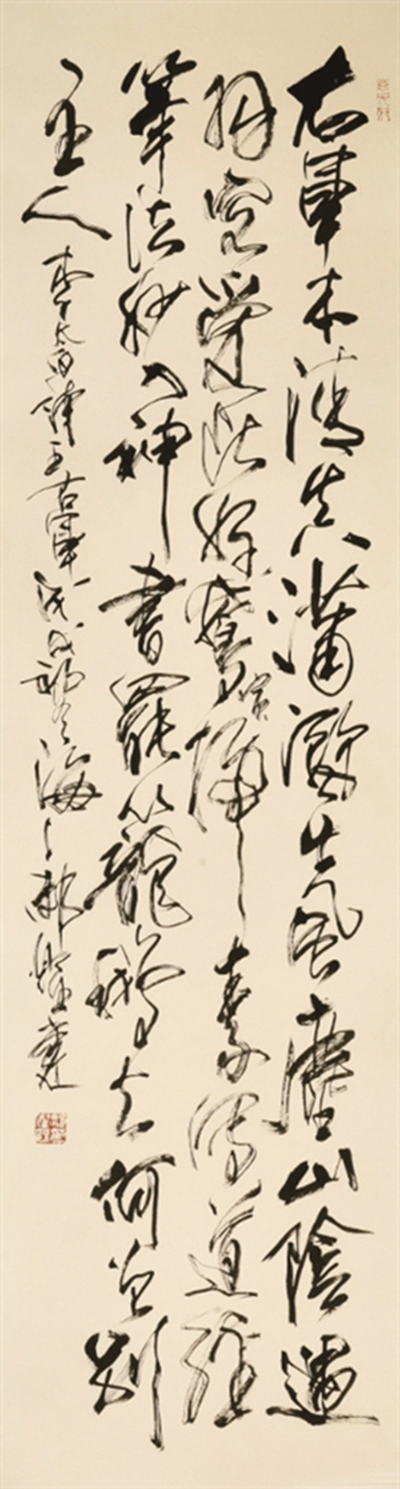 右軍本清真瀟灑出風塵山陰遇
羽客愛此好鵞賓掃素寫道經
筆法妙入神書罷籠鵞去何曾別
主人 李太白詩王右軍